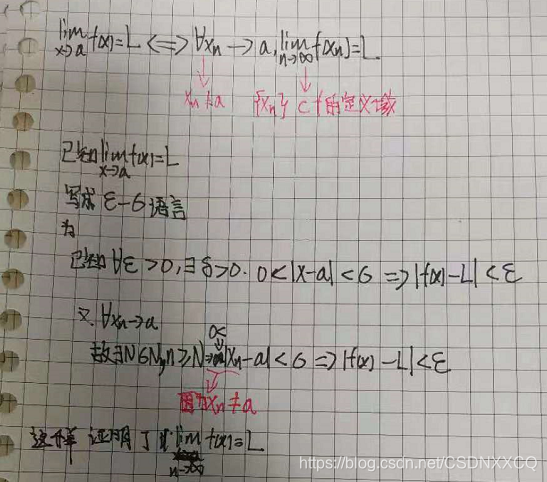 lim f(x)=L ⟺ ∀xn→a, lim f(xn)=L
x→a n→∞
xn≠a {xn} ⊂ f的定义域
已知lim f(x)=L
x→a
写成 ε-δ 语言
为
已知 ∀ε>0,∃δ>0. 0<|x-a|<δ ⇒|f(x)-L|<ε
又∀xn→a
0<
故∃N∈N,n≥N⇒|xn-a|<δ ⇒|f(x)-L|<ε
因为xn≠a
这样 证明了 lim f(x)=L
n→∞
https://blog.csdn.net/CSDNXXCQ